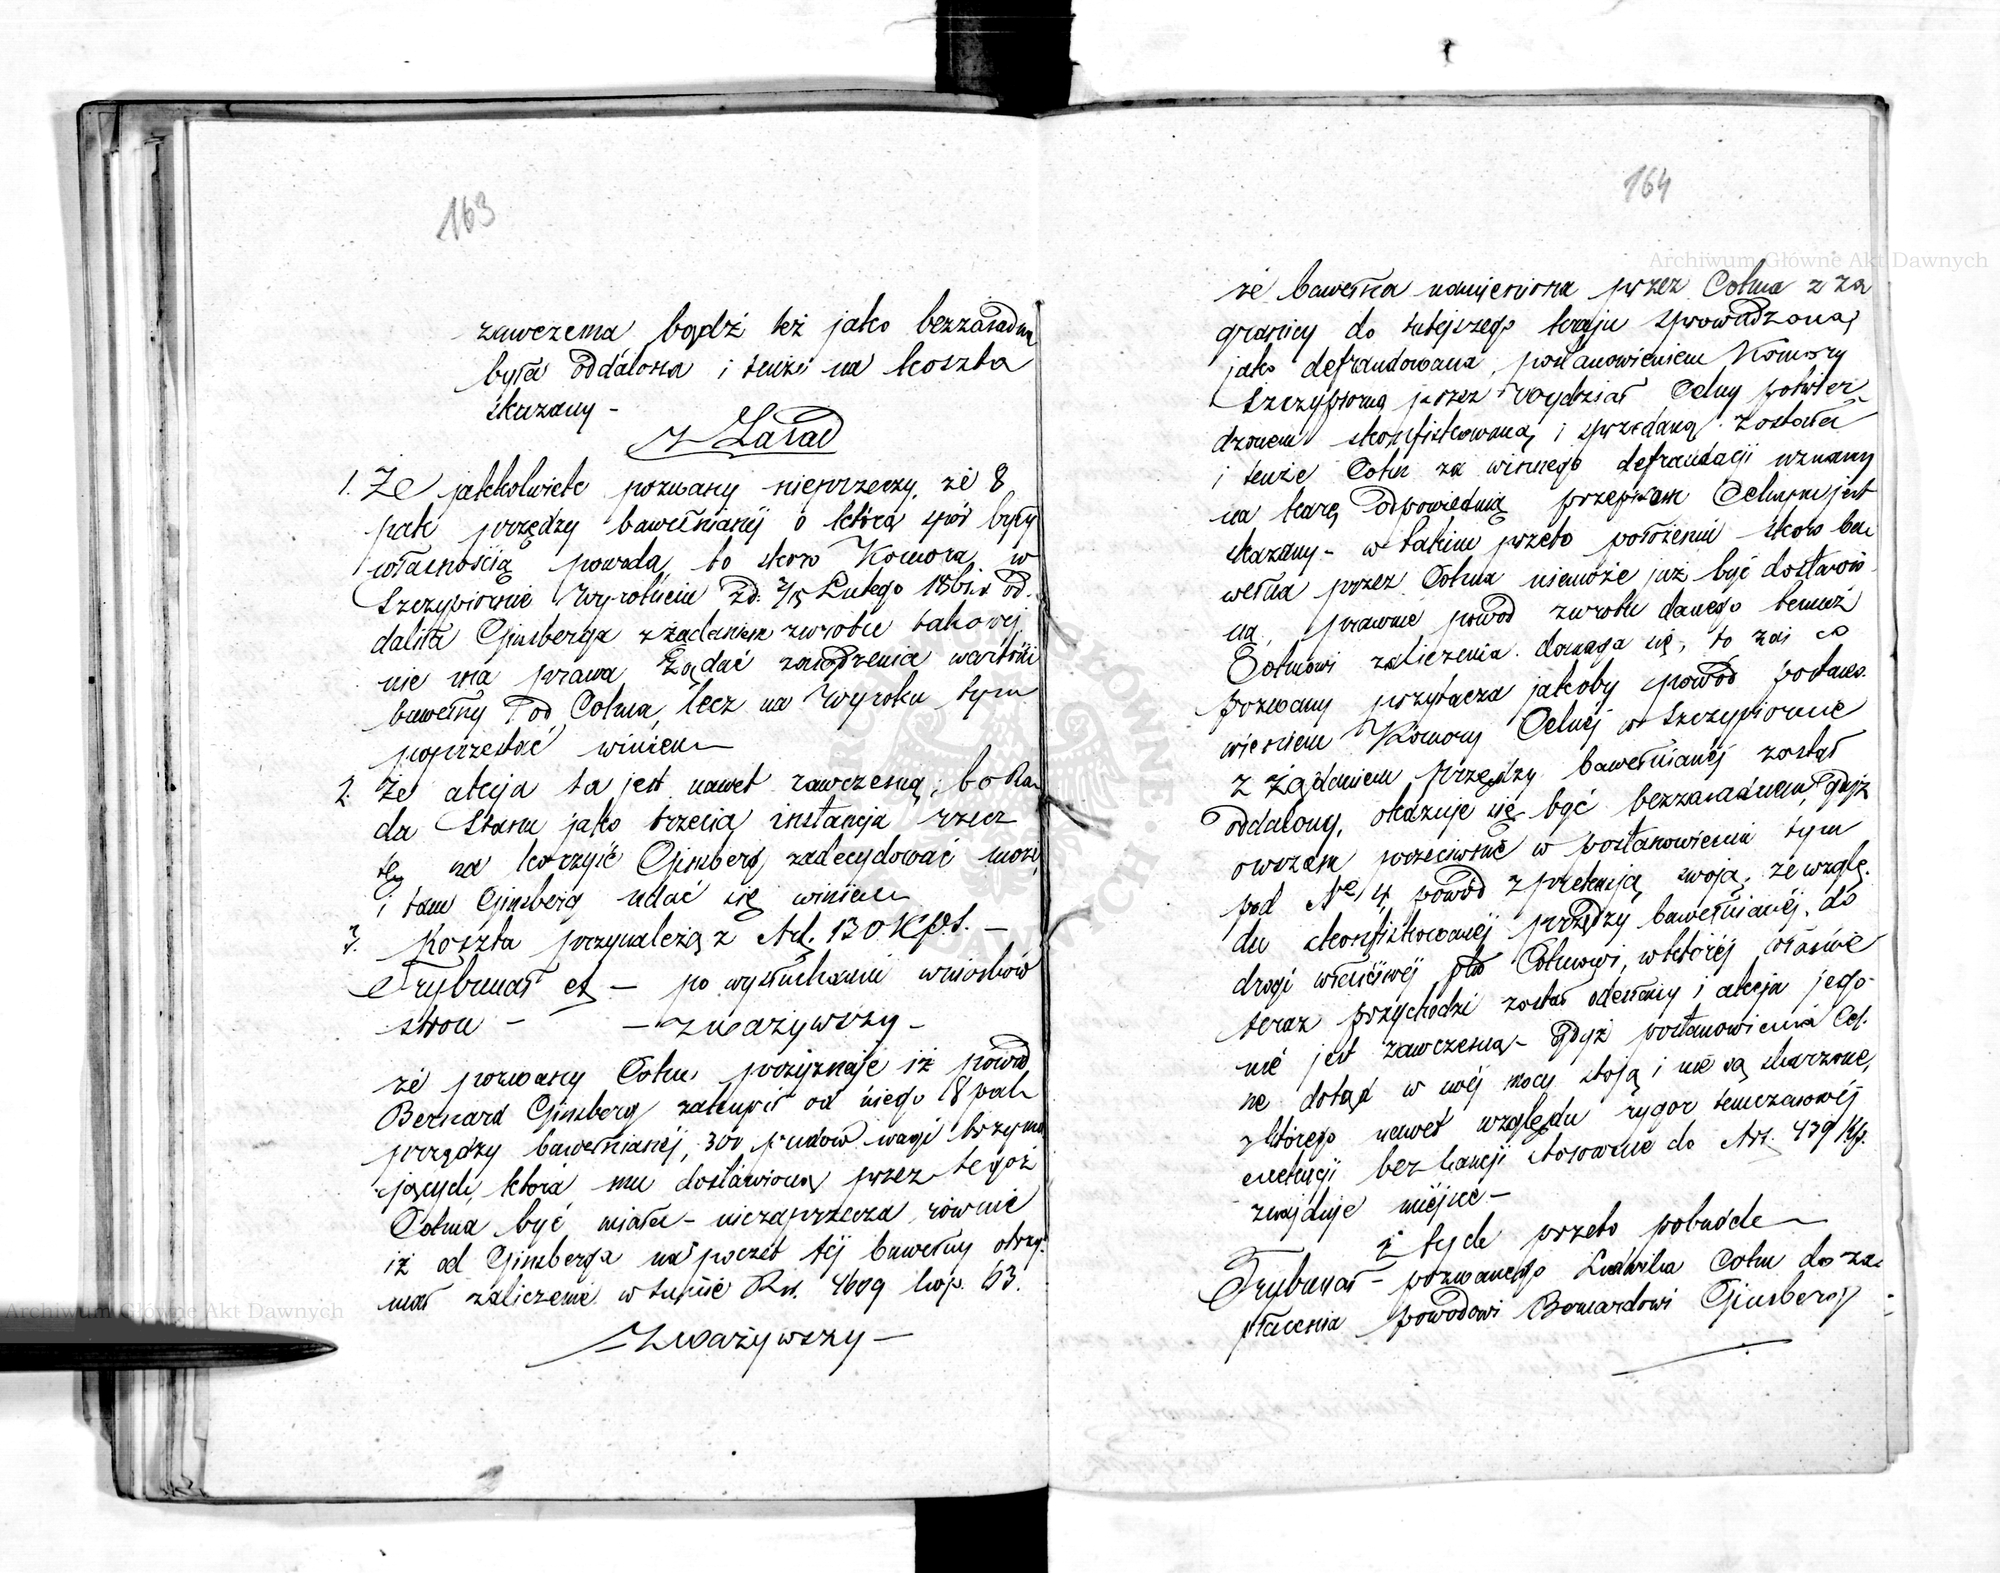 163
zawczesna bądź też jako bezzasadna
była oddaloną i tenże na koszta
skazany -
z Zasad
1. Że jakkolwiek pozwany nieprzeczy, że 8
pak przędzy bawełnianéj o którą spór były
własnością powoda, to skoro Komora w
Szczypiornie Wyrokiem zd. 3/15 Lutego 1861 r od-
daliła Ginsberga z żądaniem zwrotu takowej
nie ma prawa żądać zasądzenia wartości
bawełny od Cohna, lecz na Wyroku tym
poprzestać winien
2. Że akcja ta jest nawet zawczesną, bo Ra-
da Stanu jako trzecia instancja rzecz
tę na korzyść Ginsberg zadecydować może,
i tam Ginsberg udać się winien
3. Koszta przynależą z Art. 130 KPS. -
Trybunał et - po wysłuchaniu wniosków
stron - - zważywszy -
że pozwany Cohn, przyznaje iż powód
Bernard Ginzberg zakupił od niego 8 pak
przędzy bawełnianéj, 300 pudów wagi trzyma
jących, która mu dostawioną przez tegoż
Cohna być miała - niezaprzecza równie
iż od Ginsberga na poczet téj bawełny otrzy-
mał zaliczenie w summie Rs. 4609 kop. 63.
Zważywszy -
164
że bawełna namieniona przez Cohna z za
granicy do tutejszego kraju sprowadzona,
jako defraudowana, postanowieniem Komory
Szczypiorna przez Wydział Celny potwier-
dzonem skonfiskowaną i sprzedaną została
i tenże Cohn za winnego defraudacji uznany
na karę odpowiednią przepisom Celnym jest
skazany - w takim przeto położeniu skoro ba
wełna przez Cohna niemoże już być dostawio
ną, prawnie powód zwrotu danego temuż
Cohnowi zaliczenia domaga się, to zaś co
pozwany przytacza jakoby powód postano-
wieniem Komory Celnéj w Szczypiornie
z żądaniem przędzy bawełnianéj został
oddalony, okazuje się być bezzasadnem, gdyż
owszem przeciwnie w postanowieniu tym
pod No 4 powód z pretensją swoją, ze wzglę-
du skonfiskowanéj przędzy bawełnianéj, do
drogi właściwéj ptko Cohnowi, w któréj właśnie
teraz przychodzi został odesłany i akcja jego
nie jest zawczesną - Gdyż postanowienia Cel-
ne dotąd w swéj mocy stoją i nie są skarżone,
z którego nawet względu rygor tymczasowéj
exekucji bez kaucji stosownie do Art. 439 Kp.
znajduje miejsce -
Z tych przeto pobudek
Trybunał - pozwanego Ludwika Cohn do za-
płacenia powodowi Bernardowi Ginsberg
Archiwum Główne Akt Dawnych
Archiwum Główne Akt Dawnych